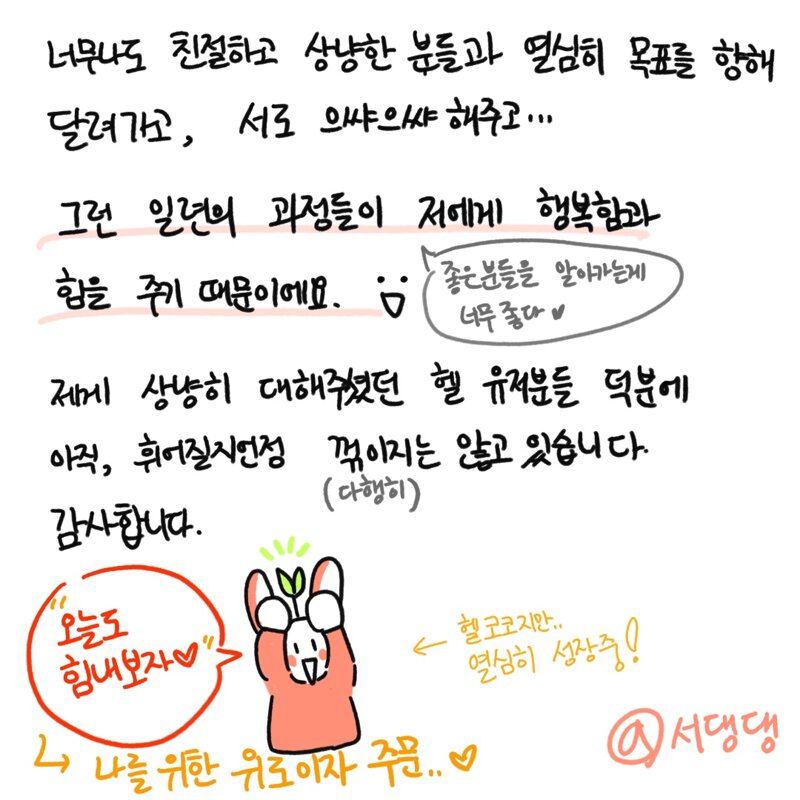 너무나도 친절하고 상냥한 분들과 열심히 목표를 향해
달려가고, 서로 으쌰으쌰 해주고...
그런 일련의 과정들이 저에게 행복함과
힘을 주기 때문이에요.
좋은분들을 알아가는게
너무 좋다♥
제게 상냥히 대해주셨던 헬 유저분들 덕분에
아직, 휘어질지언정 꺾이지는 않고 있습니다.
(다행히)
감사합니다.
"오늘도
힘내보자♡"
← 헬코코지만..
열심히 성장중!
↳ 나를 위한 위로이자 주문..♥
@서댕댕